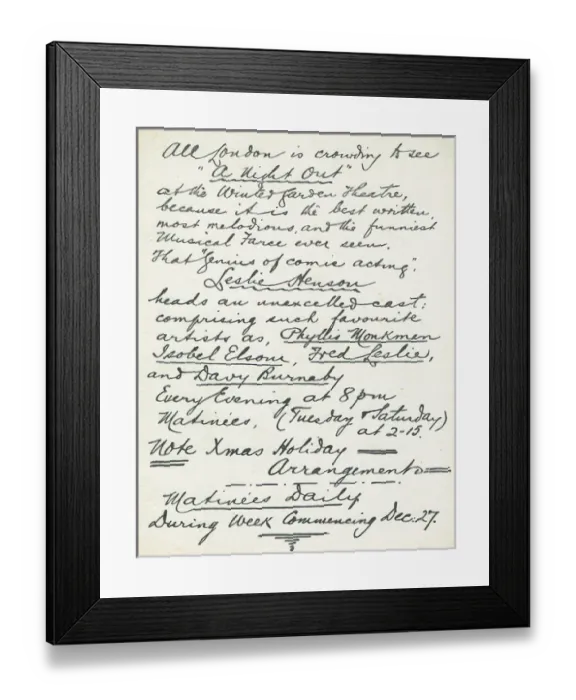 All London is crowding to see
"A Night Out"
at the Winter Garden Theatre,
because it is the best written,
most melodious, and the funniest
Musical Farce ever seen.
That "genius of comic acting",
Leslie Henson
heads an unexcelled cast:
comprising such favourite
artists as, Phyllis Monkman
Isobel Elsom, Fred Leslie,
and Davy Burnaby
Every Evening at 8 pm
Matinées, (Tuesday & Saturday)
at 2-15.
Note Xmas Holiday
Arrangements
Matinées Daily
During Week Commencing Dec. 27.